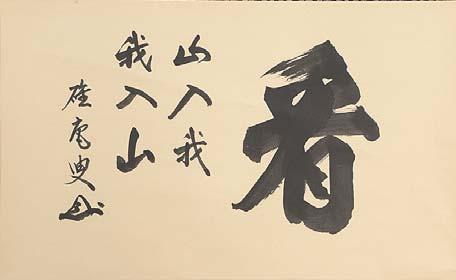 看
山入我
我入山
叟